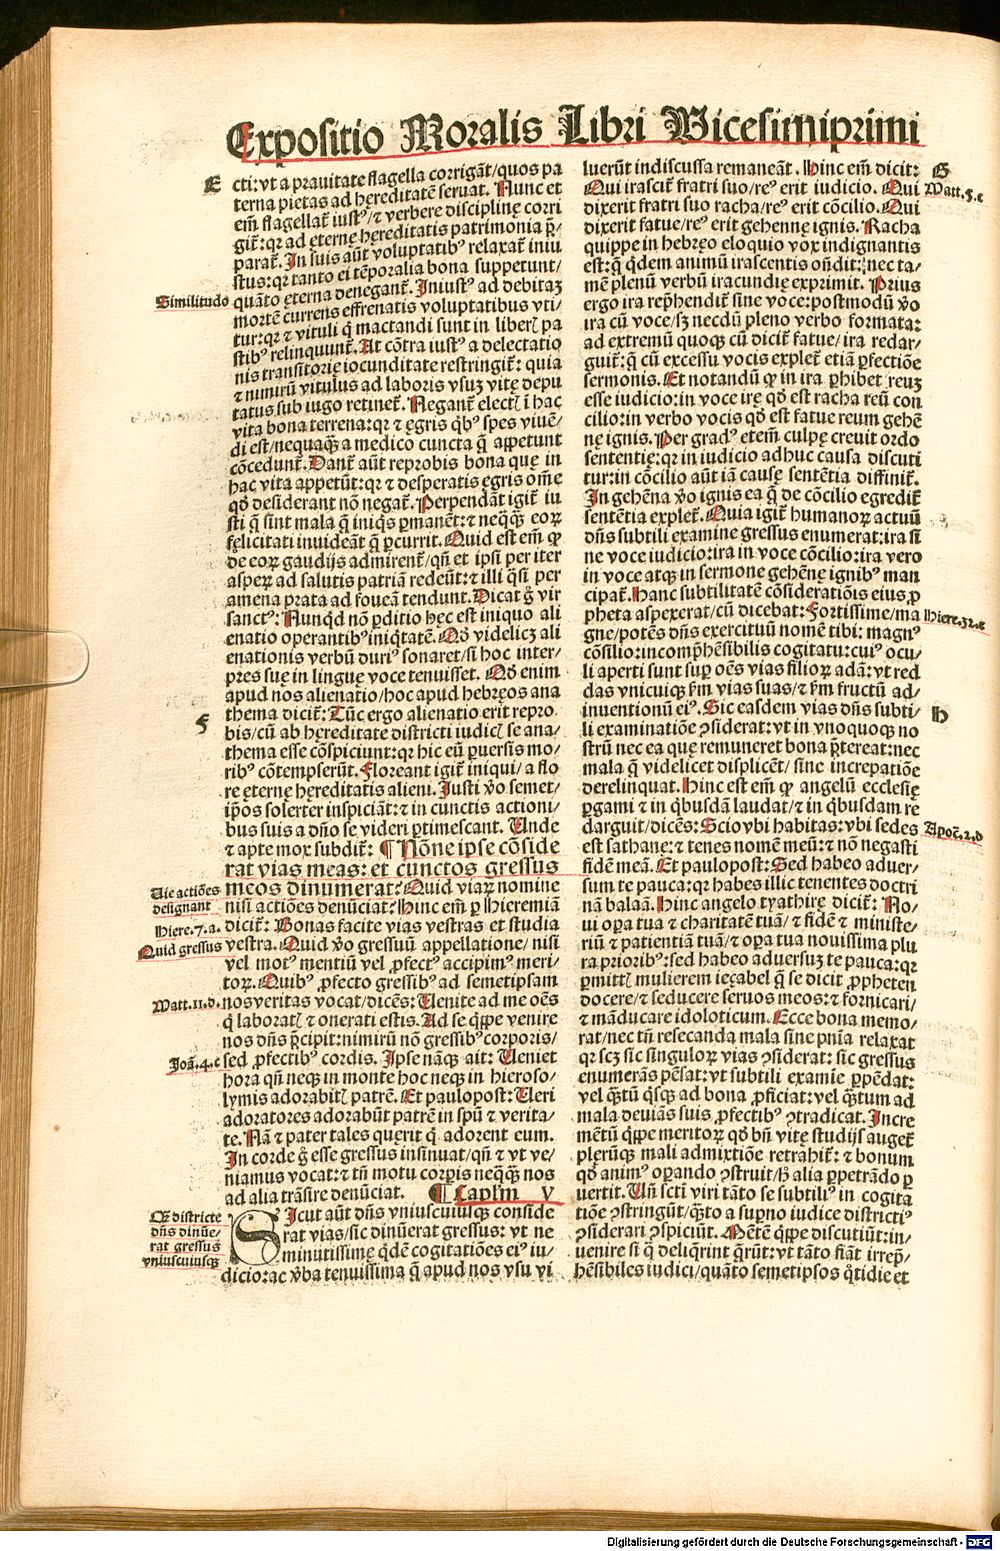 Expositio Moralis Libri Vicesimiprimi
E
cti: vt a prauitate flagella corrigāt/quos pa
terna pietas ad hęreditatē seruat. Nunc et
em̄ flagellat̄ iustꝰ/⁊ verbere disciplinę corri
git̄: qꝛ ad ęternę hęreditatis patrimonia p̄-
parat̄. In suis aūt voluptatibꝰ relaxat̄ iniu
stus: qꝛ tanto ei tēporalia bona suppetunt/
Similitudo
quāto ęterna denegant̄. Iniustꝰ ad debitaȝ
mortē currens effrenatis voluptatibus vti-
tur: qꝛ ⁊ vituli q̄ mactandi sunt in liberꝭ pa
stibꝰ relinquunt̄. At cōtra iustꝰ a delectatio
nis transitorię iocunditate restringit̄: quia
⁊ nimirū vitulus ad laboris vsuȝ vitę depu
tatus sub iugo retinet̄. Negant̄ electꝭ ī hac
vita bona terrena: qꝛ ⁊ ęgris q̄bꝰ spes viuē/
di est/nequaꝙ̄ a medico cuncta q̄ appetunt
cōcedunt̄. Dant̄ aūt reprobis bona quę in
hac vita appetūt: qꝛ ⁊ desperatis ęgris om̄e
qd̄ desiderant nō negat̄. Perpendāt igit̄ iu
sti q̄ sint mala q̄ iniqͦs ꝑmanēt: ⁊ neqꝙ̄ eoꝝ
fęlicitati inuideāt q̄ ꝑcurrit. Quid est em̄ ꝙ
de eoꝝ gaudijs admirent̄/qn̄ et ipsi per iter
asperꝝ ad salutis patriā redeūt: ⁊ illi q̄si per
amena prata ad foueā tendunt. Dicat g̊ vir
sanctꝰ: Nunqd̄ nō ꝑditio hęc est iniquo ali
enatio operantibꝰ iniq̄tatē. Qd̄ videlicȝ ali
enationis verbū duriꝰ sonaret/si hoc inter-
pres suę in linguę voce tenuisset. Qd̄ enim
apud nos alienatio/hoc apud hebręos ana
F
thema dicit̄: Tūc ergo alienatio erit repro-
bis/cū ab hęreditate districti iudicꝭ se ana/
thema esse cōspiciunt: qꝛ hic eū ꝑuersis mo/
ribꝰ cōtempserūt. Floreant igit̄ iniqui/a flo
re ęternę hęreditatis alieni. Iusti v̊o semet/
ip̄os solerter inspiciāt: ⁊ in cunctis actioni/
bus suis a dn̄o se videri ꝑtimescant. Unde
⁊ apte mox subdit̄: ¶ Nōne ipse cōside
rat vias meas: et cunctos gressus
Vie actiōes
designant
meos dinumerat? Quid viaꝝ nomine
nisi actiōes denūciat? Hinc em̄ ꝑ Hieremiā
Hiere.7.a.
dicit̄: Bonas facite vias vestras et studia
Quid gressus
vestra. Quid v̊o gressuū appellatione/nisi
vel motꝰ mentiū vel ꝓfectꝰ accipimꝰ meri-
toꝝ. Quibꝰ ꝓfecto gressibꝰ ad semetipsam
Matt.11.d.
nos veritas vocat/dicēs: Uenite ad me oēs
q̄ laboratꝭ ⁊ onerati estis. Ad se q̄ppe venire
nos dn̄s p̄cipit: nimirū nō gressibꝰ corporis/
Joā.4.c
sed ꝓfectibꝰ cordis. Ipse nāqꝫ ait: Ueniet
hora qn̄ neqꝫ in monte hoc neqꝫ in hieroso/
lymis adorabitꝭ patrē. Et paulopost: Ueri
adoratores adorabūt patrē in spū ⁊ verita/
te. Nā ⁊ pater tales quęrit q̄ adorent eum.
In corde g̊ esse gressus insinuat/qn̄ ⁊ vt ve/
niamus vocat: ⁊ tn̄ motu corꝑis neqꝙ̄ nos
ad alia trāsire denūciat. ¶ Caplm̄ V
Qꝫ districte
dn̄s dinūe/
rat gressus
vniuscuiusqꝫ
Sicut aūt dn̄s vniuscuiusqꝫ conside
rat vias/sic dinūerat gressus: vt ne
minutissimę q̄dē cogitatiōes eiꝰ iu/
dicio: ac v̊ba tenuissima q̄ apud nos vsu vi
luerūt indiscussa remaneāt. Hinc em̄ dicit:
G
Qui irascit̄ fratri suo/reꝰ erit iudicio. Qui
Matt.5.c
dixerit fratri suo racha/reꝰ erit cōcilio. Qui
dixerit fatue/reꝰ erit gehennę ignis. Racha
quippe in hebręo eloquio vox indignantis
est: q̄ q̄dem animū irascentis on̄dit: nec ta/
mē plenū verbū iracundię exprimit. Prius
ergo ira rep̄hendit̄ sine voce: postmodū v̊o
ira cū voce/sȝ necdū pleno verbo formata:
ad extremū quoqꝫ cū dicit̄ fatue/ira redar/
guit̄: q̄ cū excessu vocis explet̄ etiā ꝑfectiōe
sermonis. Et notandū ꝙ in ira ꝑhibet reuȝ
esse iudicio: in voce irę qd̄ est racha reū con
cilio: in verbo vocis qd̄ est fatue reum gehē
nę ignis. Per gradꝰ etem̄ culpę creuit ordo
sententię: qꝛ in iudicio adhuc causa discuti
tur: in cōcilio aūt iā causę sentētia diffinit̄.
In gehēna v̊o ignis ea q̄ de cōcilio egredit̄
sentētia explet̄. Quia igit̄ humanoꝝ actuū
dn̄s subtili examine gressus enumerat: ira si
ne voce iudicio: ira in voce cōcilio: ira vero
in voce atqꝫ in sermone gehēnę ignibꝰ man
cipat̄. Hanc subtilitatē cōsiderationis eius ꝓ
pheta aspexerat/cū dicebat: Fortissime/ma
Hiere.32.c
gne/potēs dn̄s exercituū nomē tibi: magnꝰ
cōsilio: incomp̄hēsibilis cogitatu: cuiꝰ ocu/
li aperti sunt suꝑ oēs vias filioꝝ adā: vt red
das vnicuiqꝫ ẜm vias suas/⁊ ẜm fructū ad/
inuentionū eiꝰ. Sic easdem vias dn̄s subti/
H
li examinatiōe ꝯsiderat: vt in vnoquoqꝫ no
strū nec ea quę remuneret bona p̄tereat: nec
mala q̄ videlicet displicēt/sine increpatiōe
derelinquat. Hinc est em̄ ꝙ angelū ecclesię
ꝑgami ⁊ in q̄busdā laudat/⁊ in q̄busdam re
darguit/dicēs: Scio vbi habitas: vbi sedes
Apoc̄.2.d
est sathanę: ⁊ tenes nomē meū: ⁊ nō negasti
fidē meā. Et paulopost: Sed habeo aduer/
sum te pauca: qꝛ habes illic tenentes doctri
nā balaā. Hinc angelo tyathirę dicit̄: No/
ui oꝑa tua ⁊ charitatē tuā/⁊ fidē ⁊ ministe/
riū ⁊ patientiā tuā/⁊ oꝑa tua nouissima plu
ra prioribꝰ: sed habeo aduersuȝ te pauca: qꝛ
ꝑmittꝭ mulierem ieçabel q̄ se dicit ꝓpheten
docere/⁊ seducere seruos meos: ⁊ fornicari/
⁊ māducare idoloticum. Ecce bona memo/
rat/nec tn̄ resecanda mala sine pn̄ia relaxat
qꝛ scȝ sic singuloꝝ vias ꝯsiderat: sic gressus
enumerās pēsat: vt subtili examīe ꝑpēdat:
vel q̄tū q̄sqꝫ ad bona ꝓficiat: vel q̄tum ad
mala deuiās suis ꝓfectibꝰ ꝯtradicat. Incre
mētū q̄ppe meritoꝝ qd̄ bn̄ vitę studijs auget̄
plerūqꝫ mali admixtiōe retrahit̄: ⁊ bonum
qd̄ animꝰ oꝑando ꝯstruit/hͦ alia ꝑpetrādo ꝑ
uertit. Un̄ scti viri tāto se subtiliꝰ in cogita
tiōe ꝯstringūt/q̄to a suꝑno iudice districtiꝰ
ꝯsiderari ꝯspiciunt. Mētē q̄ppe discutiūt: in/
uenire si q̄ deliq̄rint q̄rūt: vt tāto fiāt irrep̄/
hēsibiles iudici/quāto semetipsos q̊tidie et
Digitalisierung gefördert durch die Deutsche Forschungsgemeinschaft - DFG